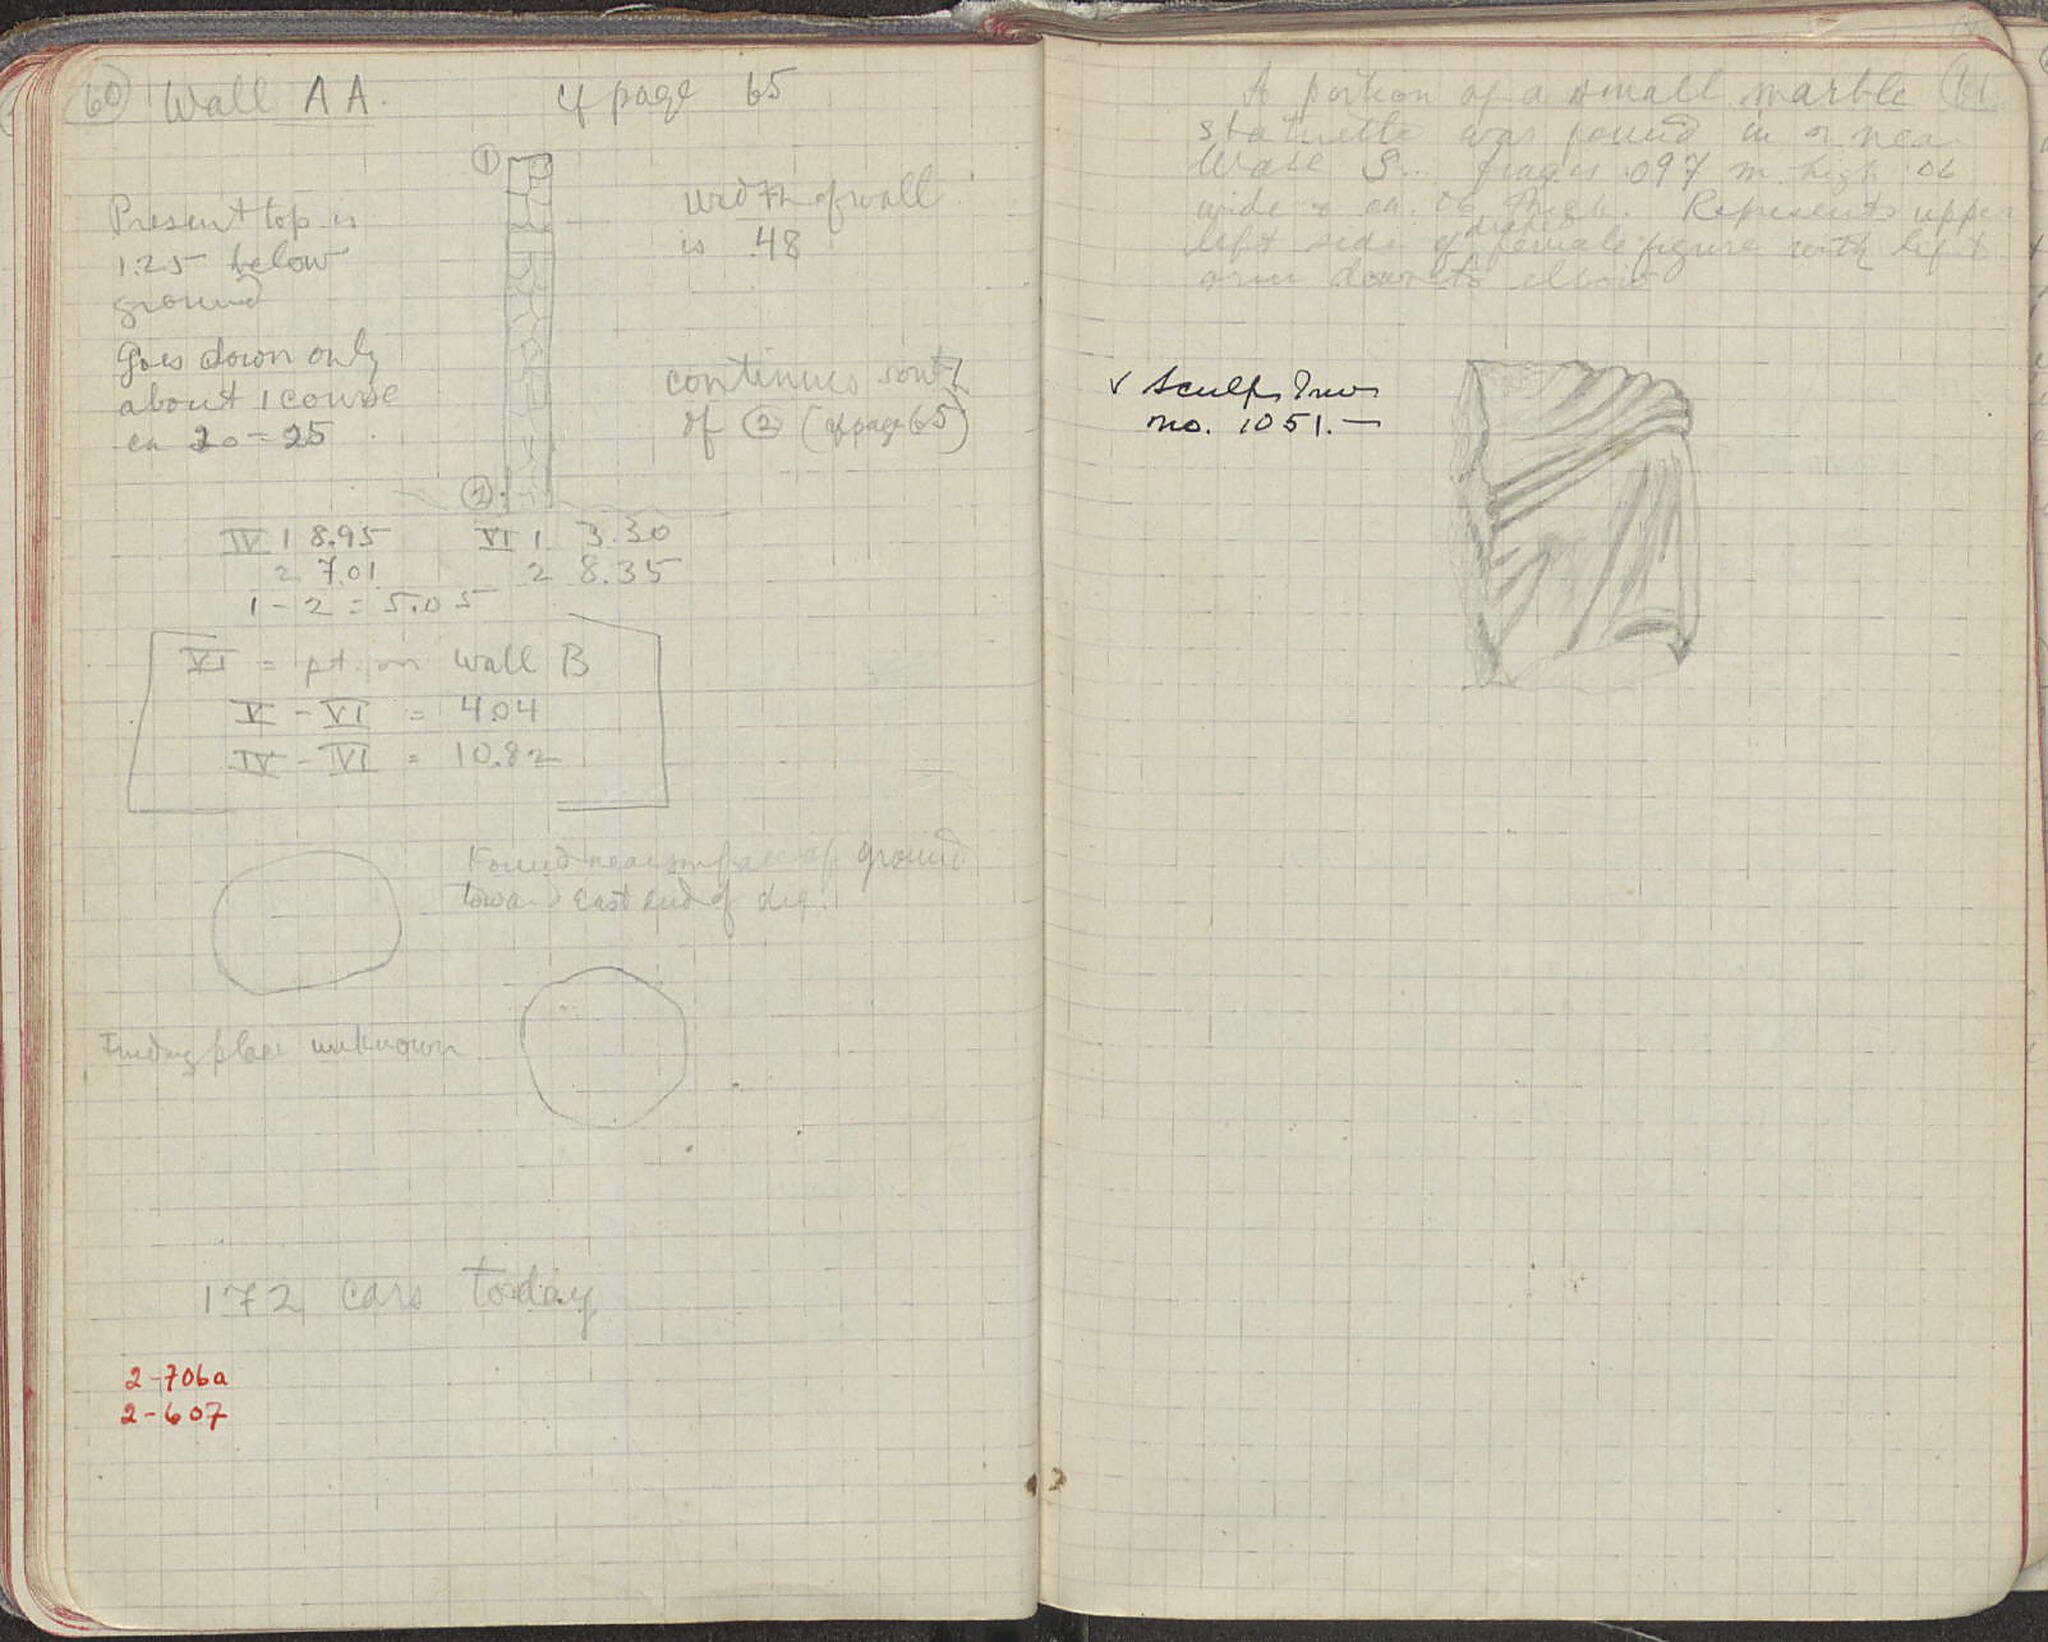 60 Wall AA. cf page 65
①
Present top is
1.25 below
ground
Goes down only
about 1 course
ca 20-25
width of wall
is .48
continues south
of ② (cf page 65)
②
IV 1 8.95 VI 1 3.30
2 7.01 2 8.35
1-2 = 5.05
VI = pt. on wall B
V - VI = 4.04
IV - VI = 10.82
Found near surface of ground
toward east end of dig.
Finding place unknown
172 cars today
2-706a
2-607
A portion of a small marble 61
statuette was found in or near
Wall S. frag is .097 m high .06
wide & ca. .06 thick. Represents upper
left side of draped female figure with left
arm down to elbow
✓ Sculp Inv
no. 1051.—